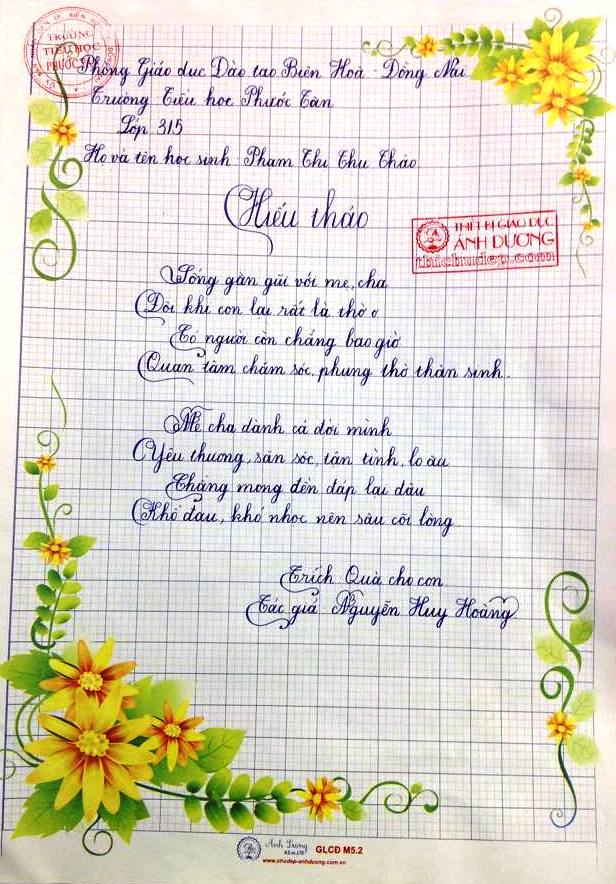 TRƯỜNG
TIỂU HỌC
PHƯỚC TÂN
Phòng Giáo dục Đào tạo Biên Hoà - Đồng Nai
Trường Tiểu học Phước Tân
Lớp 3/5
Họ và tên học sinh: Phạm Thị Thu Thảo
Hiếu thảo
THIẾT BỊ GIÁO DỤC
ÁNH DƯƠNG
thichudep.com
Sống gần gũi với mẹ, cha
Đôi khi con lại rất là thờ ơ
Có người còn chẳng bao giờ
Quan tâm chăm sóc, phụng thờ thân sinh.
Mẹ cha dành cả đời mình
Yêu thương, săn sóc, tận tình, lo âu
Chẳng mong đền đáp lại đâu
Khổ đau, khó nhọc nên sâu cõi lòng
Trích Quà cho con
Tác giả Nguyễn Huy Hoàng
Ánh Dương
GLCĐ M5.2
www.chudep-anhduong.com.vn